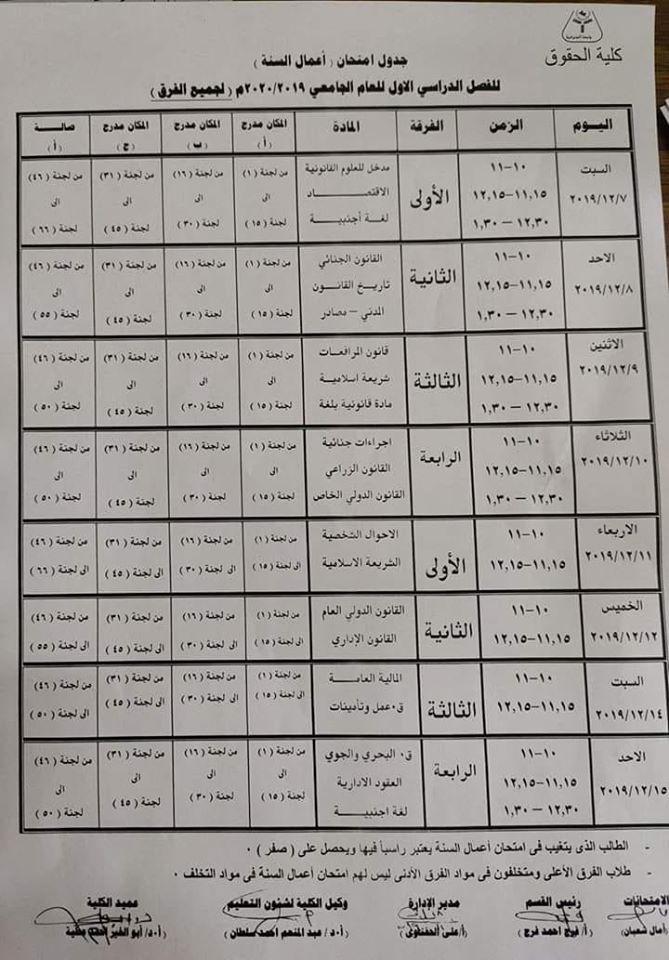 كلية الحقوق
جدول امتحان ( أعمال السنة )
للفصل الدراسي الاول للعام الجامعي ٢٠٢٠/٢٠١٩م ( لجميع الفرق )
اليوم الزمن الفرقة المادة المكان مدرج ( أ ) المكان مدرج ( ب ) المكان مدرج ( ج ) صالة ( أ )
السبت ٢٠١٩/١٢/٧
١٠–١١
١١,١٥–١٢,١٥
١٢,٣٠ – ١,٣٠
الأولى
مدخل للعلوم القانونية
الاقتصاد
لغة أجنبية
من لجنة (١) الى لجنة (١٥)
من لجنة (١٦) الى لجنة (٣٠)
من لجنة (٣١) الى لجنة (٤٥)
من لجنة (٤٦) الى لجنة (٦٦)
الاحد ٢٠١٩/١٢/٨
١٠–١١
١١,١٥–١٢,١٥
١٢,٣٠ – ١,٣٠
الثانية
القانون الجنائي
تاريخ القانون
المدني – مصادر
من لجنة (١) الى لجنة (١٥)
من لجنة (١٦) الى لجنة (٣٠)
من لجنة (٣١) الى لجنة (٤٥)
من لجنة (٤٦) الى لجنة (٥٥)
الاثنين ٢٠١٩/١٢/٩
١٠–١١
١١,١٥–١٢,١٥
١٢,٣٠ – ١,٣٠
الثالثة
قانون المرافعات
شريعة اسلامية
مادة قانونية بلغة
من لجنة (١) الى لجنة (١٥)
من لجنة (١٦) الى لجنة (٣٠)
من لجنة (٣١) الى لجنة (٤٥)
من لجنة (٤٦) الى لجنة (٥٠)
الثلاثاء ٢٠١٩/١٢/١٠
١٠–١١
١١,١٥–١٢,١٥
١٢,٣٠ – ١,٣٠
الرابعة
اجراءات جنائية
القانون الزراعي
القانون الدولي الخاص
من لجنة (١) الى لجنة (١٥)
من لجنة (١٦) الى لجنة (٣٠)
من لجنة (٣١) الى لجنة (٤٥)
من لجنة (٤٦) الى لجنة (٥٠)
الاربعاء ٢٠١٩/١٢/١١
١٠–١١
١١,١٥–١٢,١٥
الأولى
الاحوال الشخصية
الشريعة الاسلامية
من لجنة (١) الى لجنة (١٥)
من لجنة (١٦) الى لجنة (٣٠)
من لجنة (٣١) الى لجنة (٤٥)
من لجنة (٤٦) الى لجنة (٦٦)
الخميس ٢٠١٩/١٢/١٢
١٠–١١
١١,١٥–١٢,١٥
الثانية
القانون الدولي العام
القانون الإداري
من لجنة (١) الى لجنة (١٥)
من لجنة (١٦) الى لجنة (٣٠)
من لجنة (٣١) الى لجنة (٤٥)
من لجنة (٤٦) الى لجنة (٥٥)
السبت ٢٠١٩/١٢/١٤
١٠–١١
١١,١٥–١٢,١٥
الثالثة
المالية العامة
ق٠عمل وتأمينات
من لجنة (١) الى لجنة (١٥)
من لجنة (١٦) الى لجنة (٣٠)
من لجنة (٣١) الى لجنة (٤٥)
من لجنة (٤٦) الى لجنة (٥٠)
الاحد ٢٠١٩/١٢/١٥
١٠–١١
١١,١٥–١٢,١٥
١٢,٣٠ – ١,٣٠
الرابعة
ق٠ البحري والجوي
العقود الادارية
لغة اجنبية
من لجنة (١) الى لجنة (١٥)
من لجنة (١٦) الى لجنة (٣٠)
من لجنة (٣١) الى لجنة (٤٥)
من لجنة (٤٦) الى لجنة (٥٠)
- الطالب الذى يتغيب فى امتحان أعمال السنة يعتبر راسباً فيها ويحصل على ( صفر ) ٠
- طلاب الفرق الأعلى ومتخلفون فى مواد الفرق الأدنى ليس لهم امتحان أعمال السنة فى مواد التخلف ٠
الامتحانات رئيس القسم مدير الإدارة وكيل الكلية لشئون التعليم عميد الكلية
أمال شعبان أ/ فرج احمد فرج أ/على الحفناوى أ٠د/ عبد المنعم احمد سلطان أ٠د/ أبو الخير احمد عطية